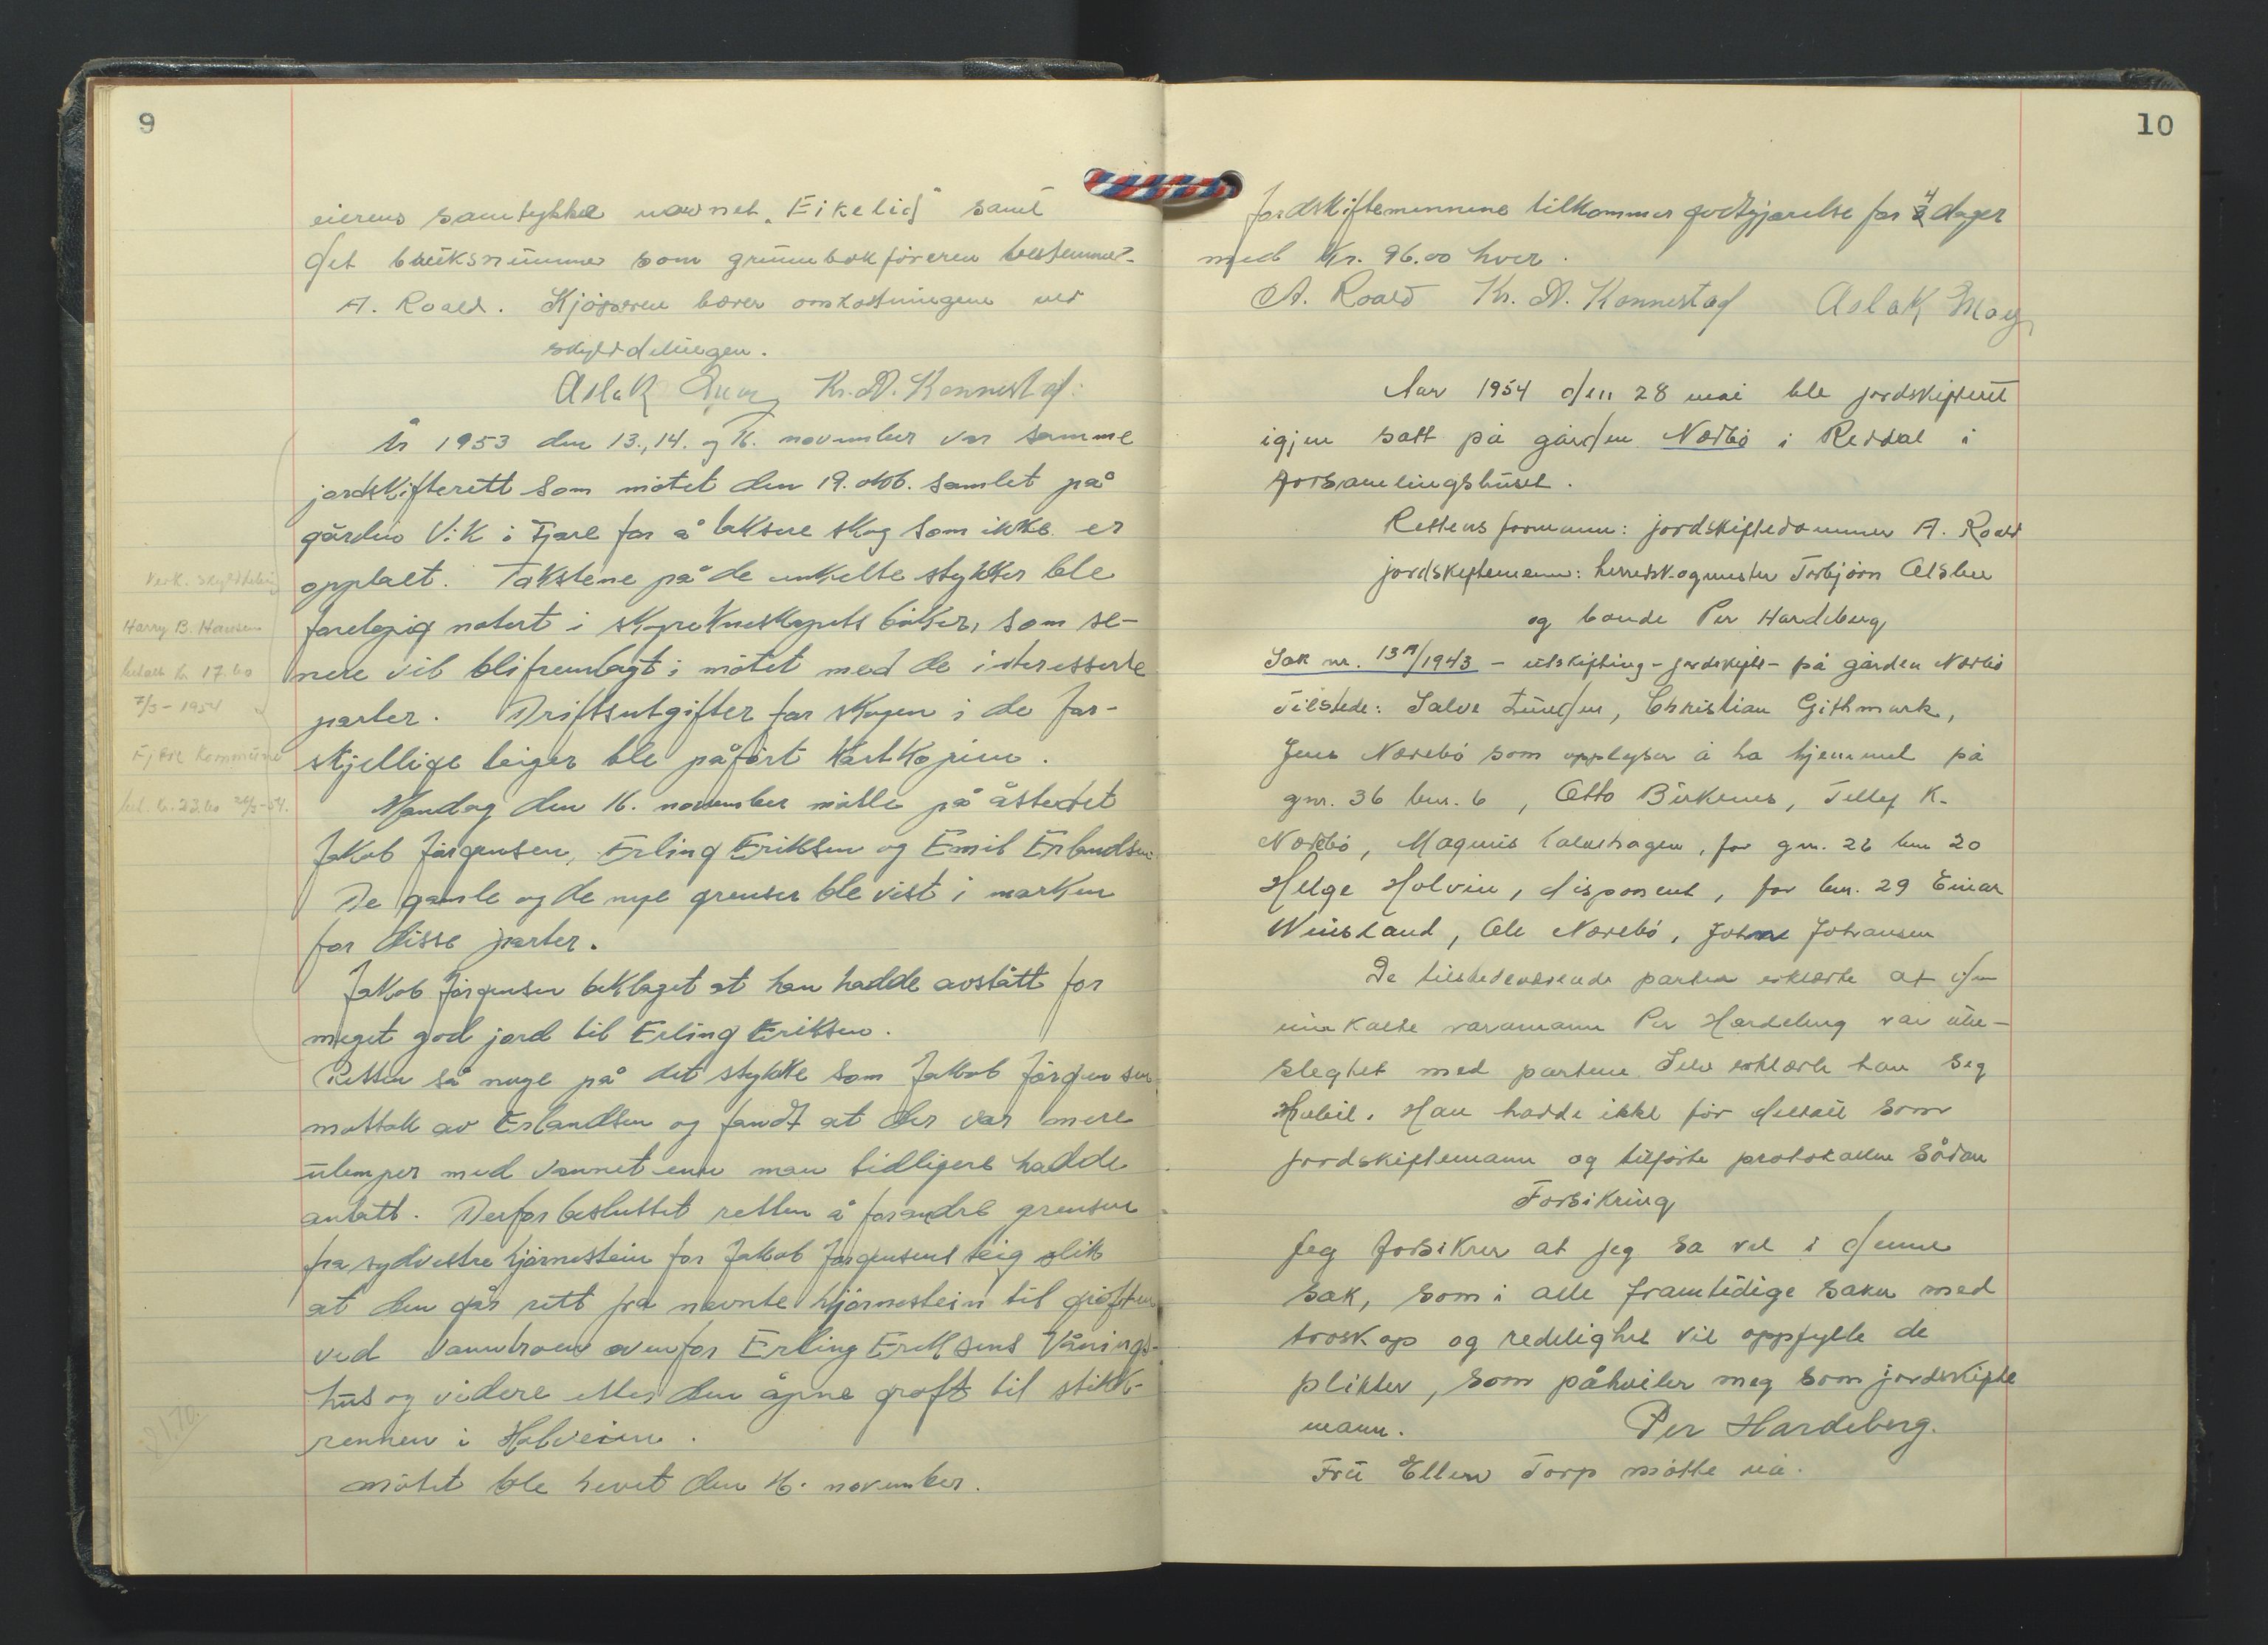 9
eierens samtykke navnet "Eikelid" samt
det bruksnummer som grunnbokföreren bestemmer.
A. Roald. Kjöperen bærer omkostningene ved
skylddelingen.
Aslak Kr. A. Konnestad.
År 1953 den 13., 14. og 16. november var samme
jordskifterett som mötet den 19. oktb. samlet på
gården Vik i Fjære for å taksere skog som ikke er
opplaet. Takstene på de enkelte stykker ble
forelopig notert i bøker, som se-
nere vil bli fremlagt i mötet med de interesserte
parter. Driftsutgifter for skogen i de for-
skjellige teiger ble påfört kartkopien.
Mandag den 16. november mötte på åstedet
Jakob Jörgensen, Erling Eriksen og Emil Erlandsen.
De gamle og de nye grenser ble vist i marken
for disse parter.
Jakob Jörgensen beklaget at han hadde avstått for
meget god jord til Erling Eriksen.
Retten så nöye på det stykke som Jakob Jörgensen
mottok av Erlandsen og fandt at der var mere
ulemper med vannet enn man tidligere hadde
antatt. Derfor besluttet retten å forandre grensen
fra sydvestre hjörnestein for Jakob Jörgensens teig slik
at den går rett fra nevnte hjörnestein til gröften
ved ovenfor Erling Eriksens Vånings-
hus og videre etter den åpne gröft til stikk-
rennen i Holveien.
Mötet ble hevet den 16. november.
Verk. skylddeling
Harry B. Hansen
betalt kr 17.60
7/5 - 1954
Fjære Kommune
bet. kr. 23.60
10
Jordskiftemennene tilkommer godtgjørelse for 4 dager
med Kr. 96.00 hver.
A. Roald Kr. A. Konnestad Aslak
Aar 1954 den 28 mai ble jordskifterett
igjen satt på gården Nørbö i Reddal i
Forsamlingshuset.
Rettens formann: jordskiftedommer A. Roald
jordskiftemenn: herredskogmester Torbjörn Olsbu
og bonde Per Hardeberg
Sak nr. 13A/1943 - utskifting - jordskifte - på gården Nørbö
Tilstede: Salve Lunden, Christian Githmark,
Jens Nørebö som opplyser å ha hjemmel på
gnr. 36 bnr. 6, Otto Birkenes, Tellef K.
Nørebö, Magnus Calushagen, for gnr. 26 bnr 20
Helge Holvin, disponent, for bnr. 29 Einar
Winsland, Ole Nørebö, Johansen
De tilstedeværende parter erklærte at den
innkalte varamann Per Hardeberg var ube-
slegtet med partene. Selv erklærte han seg
Habil. Han hadde ikke för deltatt som
jordskiftemann og tilförte protokollen sådan
Forsikring
Jeg forsikrer at jeg sa vel i denne
sak, som i alle framtidige saker med
troskap og redelighet vil oppfylle de
plikter, som påhviler meg som jordskifte
mann. Per Hardeberg.
Frü Ellen Torp mötte nå.